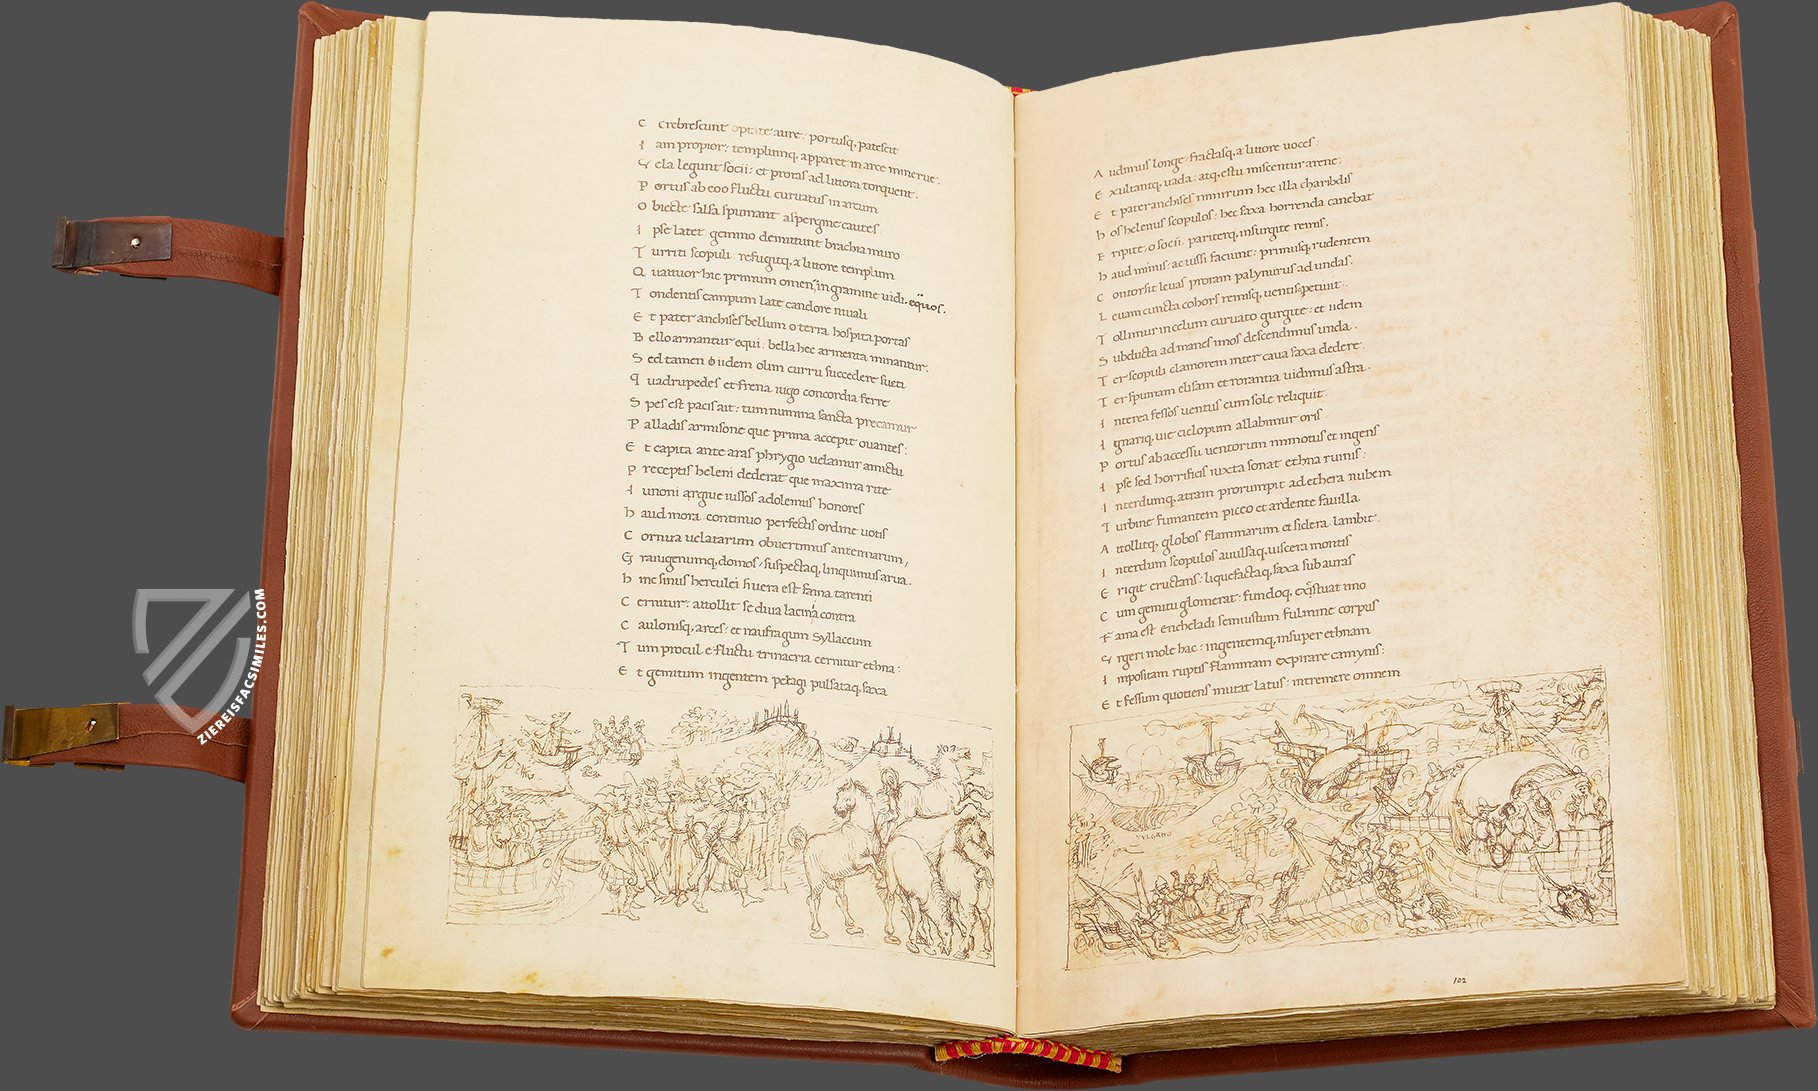 C crebrescunt optate aure: portusq, patescit
I am propior: templumq, apparet in arce minerve.
V ela legunt socii: et proras ad littora torquent.
P ortus ab eoo fluctu curuatus in arcum
O biecte salsa spumant aspergine cautes.
I pse latet gemino demittunt brachia muro
T urriti scopuli refugitq, a littore templum
Q uattuor hic primum omen, in gramine uidi, equos.
T ondentis campum late candore niuali
E t pater anchises bellum o terra hospita portas
B ello armantur equi: bella hec armenta minantur:
S ed tamen iidem olim curru succedere sueti
Q uadrupedes et frena iugo concordia ferre
S pes est pacis ait: tum numina sancta precamur
P alladis armisone que prima accepit ouantes:
E t capita ante aras phrygio uelamur amictu
P receptis heleni dederat que maxima rite
I unoni argiue iussos adolemus honores
h aud mora continuo perfectis ordine uotis
C ornua uelatarum obuertimus antennarum,
G raiugenumq, domos, suspectaq, linquimus arua.
h inc sinus herculei si uera est fama tarenti
C ernitur: attollit se diua lacinia contra
C aulonisq, arces: et naufragum Syllaceum
T um procul e fluctu trinacria cernitur ethna:
E t gemitum ingentem pelagi pulsataq, saxa
A udimus longe: fractasq, a littore uoces:
E xultantq, uada: atq, estu miscentur arene:
E t pater anchises nimirum hec illa charibdis
h os helenus scopulos: hec saxa horrenda canebat
E ripite, o socii, pariterq, insurgite remis.
h aud minus: ac iussi faciunt: primusq, rudentem
C ontorsit leuas proram palynurus ad undas.
L euam cuncta cohors remisq, uentisq, petiuit.
T ollimur in celum curuato gurgite: et iidem
S ubducta ad manes imos descendimus unda.
T er scopuli clamorem inter caua saxa dedere.
T er spumam elisam et rorantia uidimus astra.
I nterea fessos uentus cum sole reliquit.
I gnariq, uie ciclopum allabimur oris
P ortus ab accessu uentorum immotus et ingens
I pse sed horrificis iuxta sonat ethna ruinis:
I nterdumq, atram prorumpit ad ethera nubem
T urbine fumantem piceo et ardente fauilla
A ttollitq, globos flammarum et sidera lambit.
I nterdum scopulos auulsaq, uiscera montis
E rigit eructans: liquefactaq, saxa sub auras
C um gemitu glomerat: fundoq, exestuat imo
F ama est encheladi semiustum fulmine corpus
V rgeri mole hac: ingentemq, insuper ethnam
I mpositam ruptis flammam expirare caminis:
E t fessum quotiens mutat latus: intremere omnem
VULGANO
102
ZIEREISFACSIMILES.COM